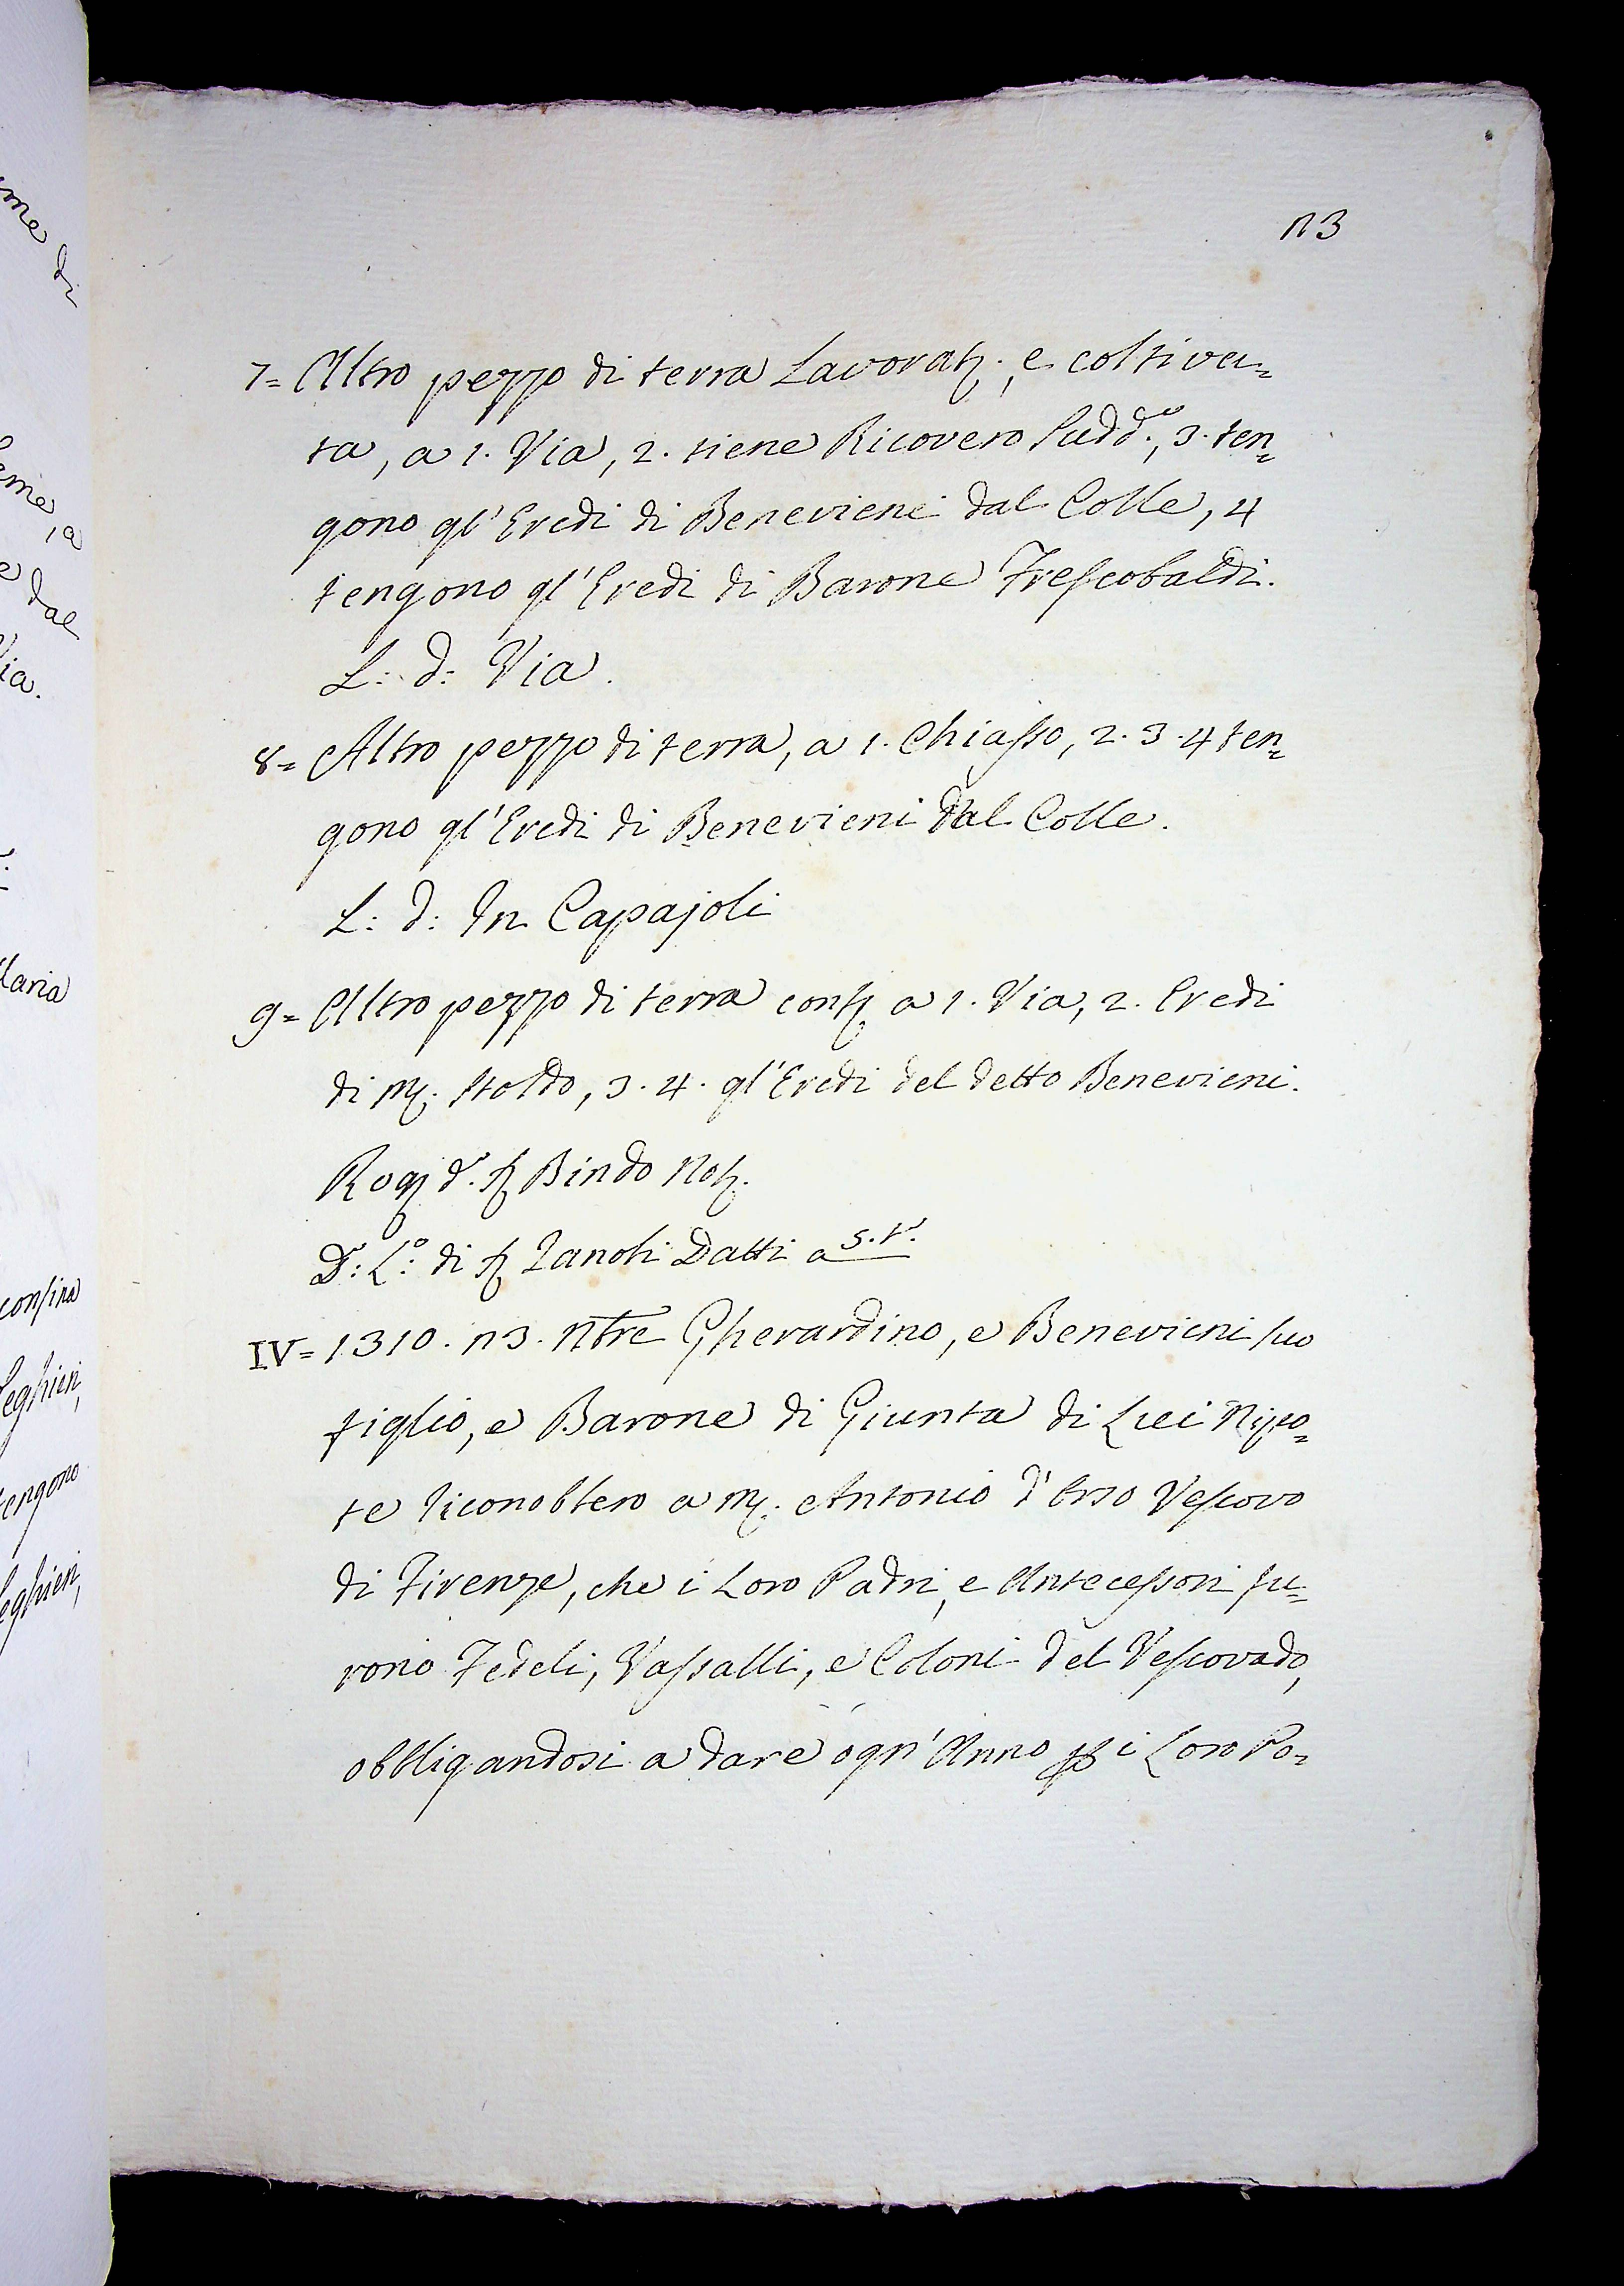 me di
eme, a
e dal
Via.
Maria
confina
leghieri,
tengono
leghieri,
113
7= Altro pezzo di terra Lavorat. e coltiva=
ta, a 1. Via, 2. tiene Ricovero sudd.o, 3. ten=
gono gl'Eredi di Benevieni dal Colle, 4
tengono gl'Eredi di Barone Frescobaldi.
L: d: Via.
8= Altro pezzo di terra, a 1. Chiasso, 2. 3. 4 ten=
gono gl'Eredi di Benevieni dal Colle.
L: d: In Capajoli
9= Altro pezzo di terra conf. a 1. Via, 2. Eredi
di M. Stoldo, 3. 4. gl'Eredi del detto Benevieni.
Rog. d. S. Bindo Not.
D: L.o: di S. Zanobi Datti a 5. t.
IV= 1310. 13. Nbre Gherardino, e Benevieni suo
figlio, e Barone di Giunta di Lui Nipo=
te riconobbero a M. Antonio d'Orso Vescovo
di Firenze, che i Loro Padri, e Antecessori fu=
rono Fedeli, Vassalli, e Coloni del Vescovado,
obbligandosi a dare ogn'Anno p i Loro Po=